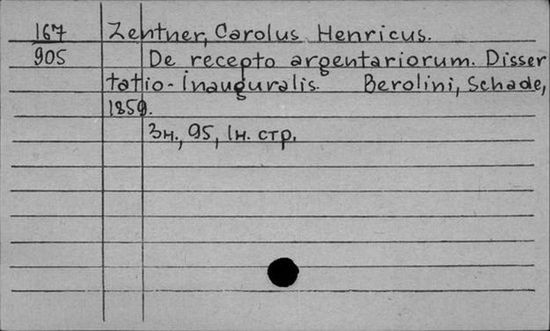 167 Zentner, Carolus Henricus.
905 De recepto argentariorum. Disser
tatio inauguralis. Berolini, Schade,
1859.
3н., 95, 1н. стр.